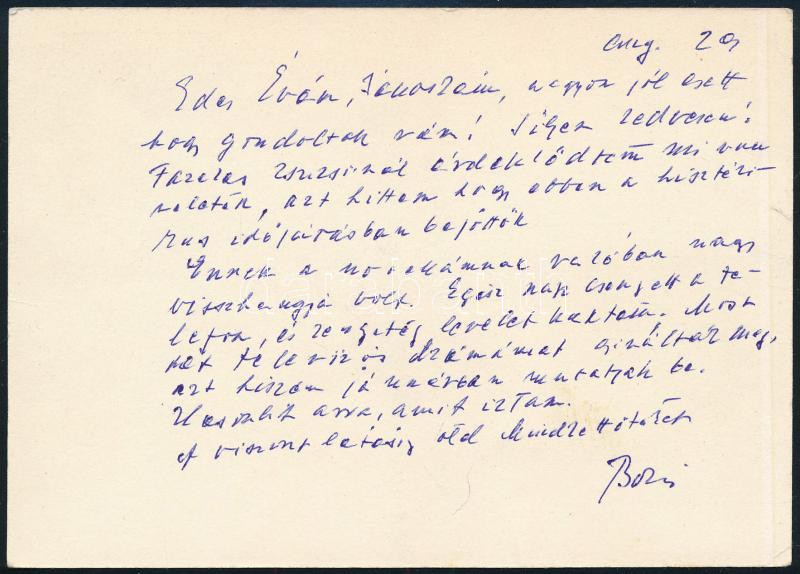 aug. 29
Édes Évám, Jánoskám, nagyon jól esett
hogy gondoltok rám!
Fazekas Zsuzsinál érdeklődtem mi van
veletek, azt hittem hogy ebben a hisztéri-
kus időjárásban bejöttök
Ennek a novellámnak valóban nagy
visszhangja volt. Egész nap csengett a te-
lefon, és rengeteg levelet kaptam. Most
két televiziós drámámat csinálták meg,
azt hiszem januárban mutatják be.
Hasonlít arra, amit írtam.
A viszontlátásig ölel Mindkettőtöket
Boris